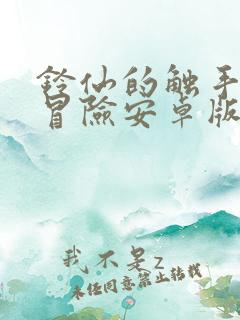 铃仙的触手
冒險安卓版
我不是z
未经同意禁止转载